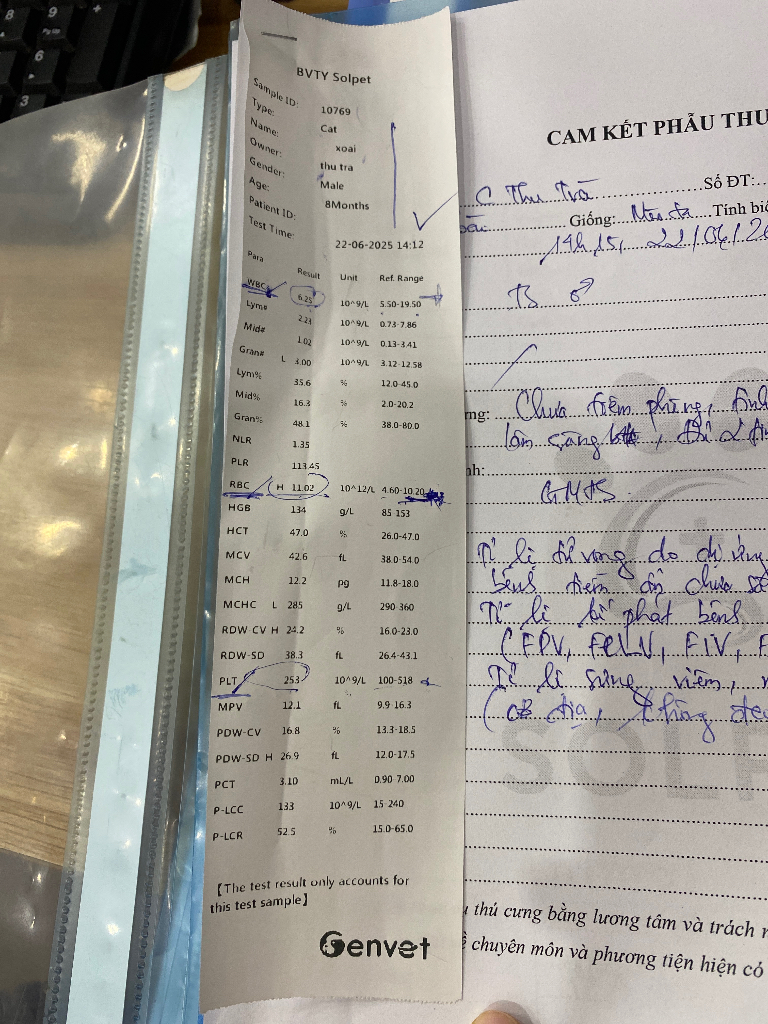 BVTY Solpet
Sample ID: 10769
Type: Cat
Name: xoai
Owner: thu tra
Gender: Male
Age: 8Months
Patient ID:
Test Time: 22-06-2025 14:12
Para Result Unit Ref. Range
WBC 6.25 10^9/L 5.50-19.50
Lym# 2.23 10^9/L 0.73-7.86
Mid# 1.02 10^9/L 0.13-3.41
Gran# L 3.00 10^9/L 3.12-12.58
Lym% 35.6 % 12.0-45.0
Mid% 16.3 % 2.0-20.2
Gran% 48.1 % 38.0-80.0
NLR 1.35
PLR 113.45
RBC H 11.02 10^12/L 4.60-10.20
HGB 134 g/L 85-153
HCT 47.0 % 26.0-47.0
MCV 42.6 fL 38.0-54.0
MCH 12.2 pg 11.8-18.0
MCHC L 285 g/L 290-360
RDW-CV H 24.2 % 16.0-23.0
RDW-SD 38.3 fL 26.4-43.1
PLT 253 10^9/L 100-518
MPV 12.1 fL 9.9-16.3
PDW-CV 16.8 % 13.3-18.5
PDW-SD H 26.9 fL 12.0-17.5
PCT 3.10 mL/L 0.90-7.00
P-LCC 133 10^9/L 15-240
P-LCR 52.5 % 15.0-65.0
【The test result only accounts for
this test sample】
Genvet
CAM KẾT PHẪU THU
C Thu Trà Số ĐT:
Giống: Tính biệ
14h15, 22/06/20
TS ♂
Chưa tiêm phòng,
Tỉ lệ tử vong do dị ứng
bệnh tiềm ẩn chưa
Tỉ lệ phát bệnh
(FPV, FeLV, FIV, F
Tỉ lệ sưng viêm,
thú cưng bằng lương tâm và trách n
chuyên môn và phương tiện hiện có